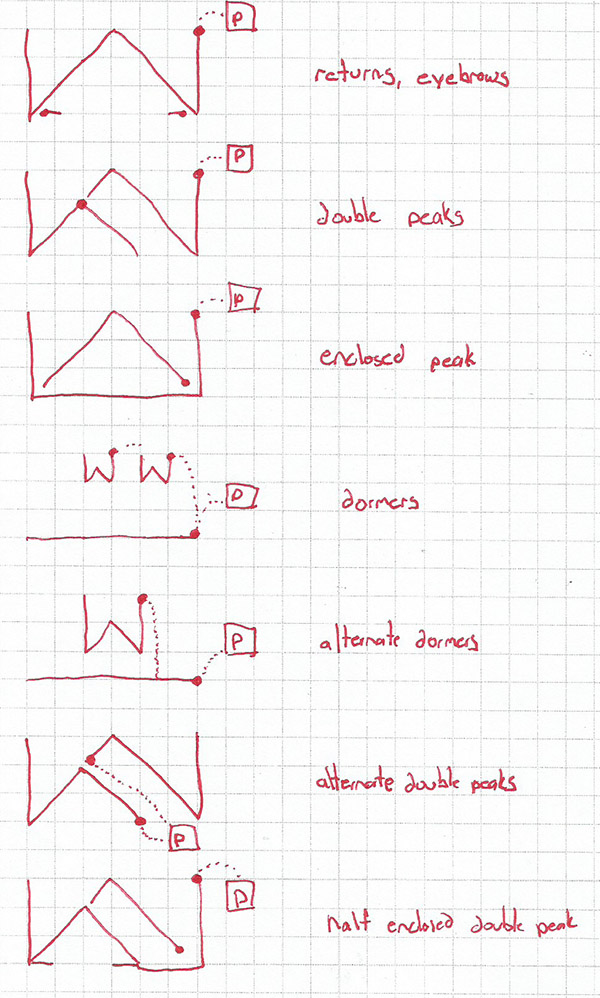 P
returns, eyebrows
P
double peaks
P
enclosed peak
P
dormers
P
alternate dormers
P
alternate double peaks
P
half enclosed double peak